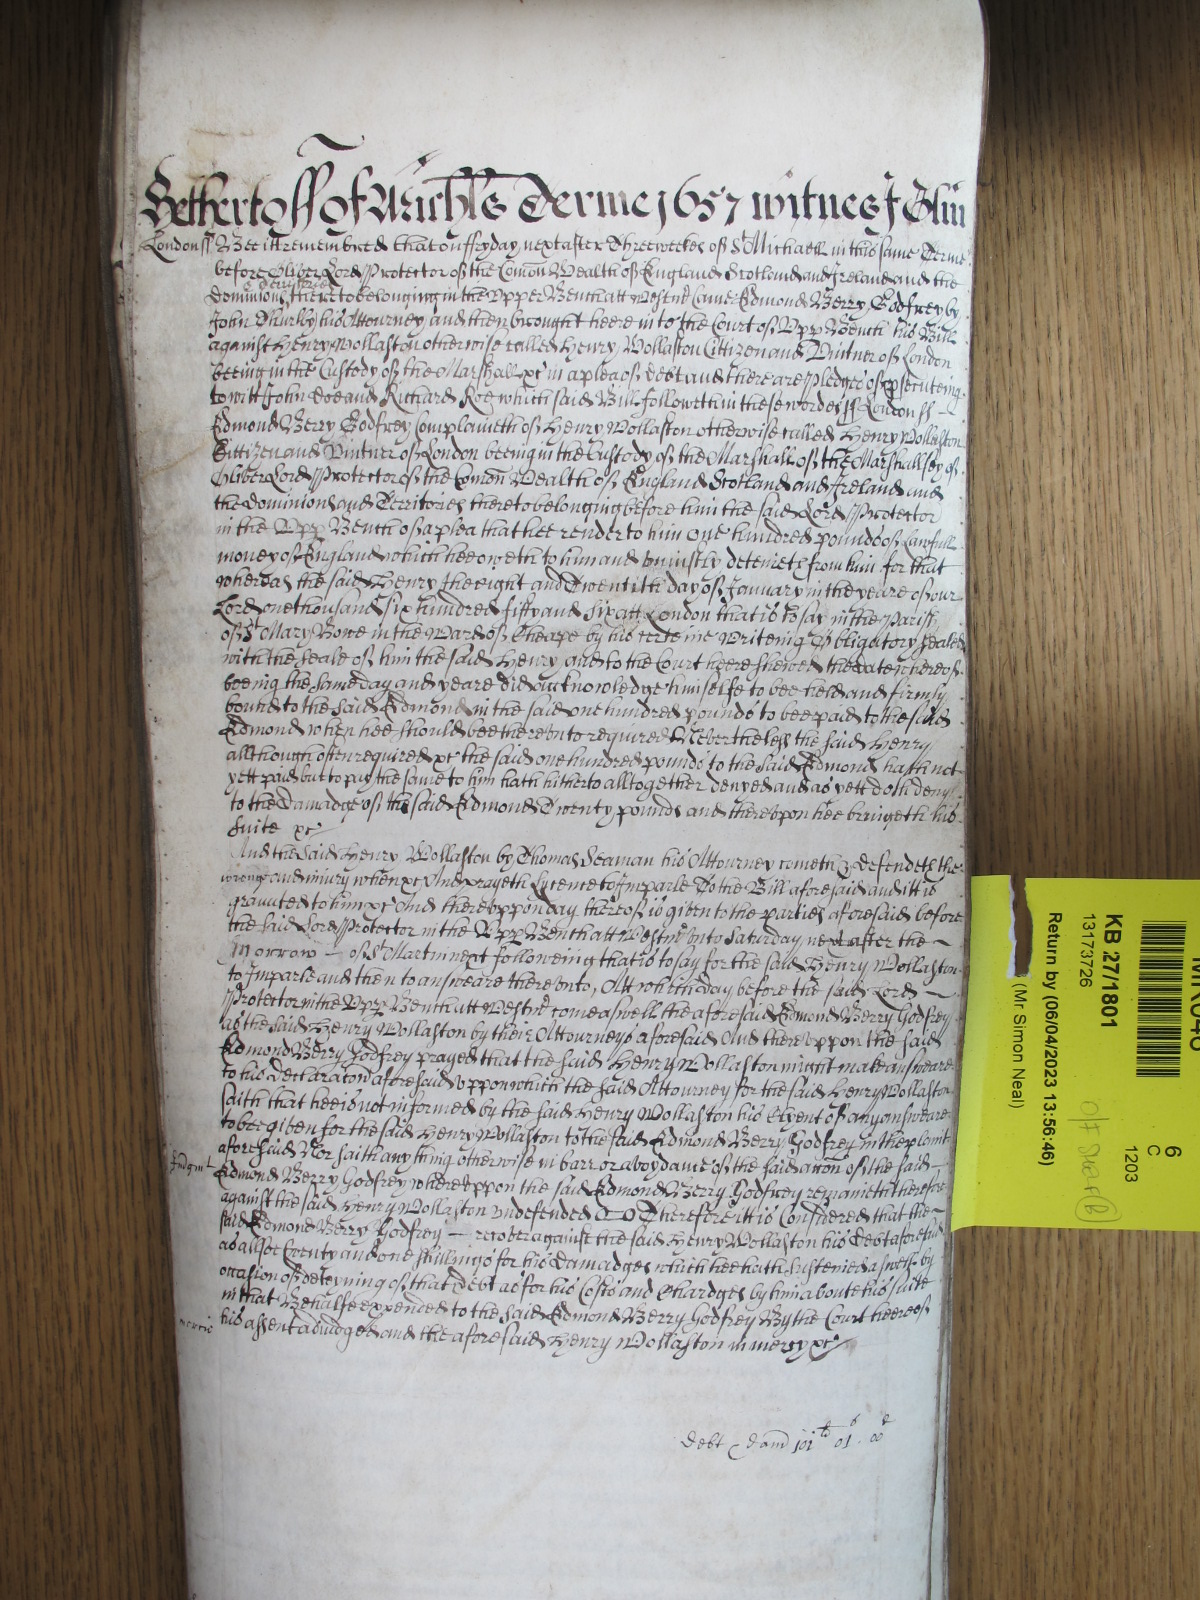 Hetherto ff of Michls Terme 1657 Witnes J Glin
London ss Bee it remembred that on ffryday next after Three weekes of St Michaell in this same Terme
before Oliver Lord Protector of the Comon Wealth of England Scotland and Ireland and the
& Territories
Dominions thereto belonging in the Upper Bench att Westmr Came Edmond Berry Godfrey by
John Thurlby his Attourney and then brought heere into the Court of Upp Bench his Bill
against Henry Wollaston otherwise called Henry Wollaston Cittizen and Vintner of London
beeing in the Custody of the Marshall xc in a plea of debt and there are Pledges of psecuteing
to witt John Doe and Richard Roe which said Bill followeth in these wordes ss London ss
Edmond Berry Godfrey Complaineth of Henry Wollaston otherwise called Henry Wollaston
Cittizen and Vintner of London beeing in the Custody of the Marshall of the Marshallsey of
Oliver Lord Protector of the Comon Wealth of England Scotland and Ireland and
the Dominions and Territories thereto belonging before him the said Lord Protector
in the Upp Bench of a plea that hee render to him one hundred pounds of Lawfull
money of England which hee oweth to him and uniustly deteineth from him for that
whereas the said Henry the eight and Twentith day of January in the yeare of our
Lord one thousand six hundred fifty and six att London that is to say in the Parish
of St Mary Bowe in the Ward of Cheape by his certeine Writeing Obligatory sealed
with the seale of him the said Henry and to the Court heere shewed the date whereof
beeing the same day and yeare did acknowledge himselfe to bee held and firmly
bound to the said Edmond in the said one hundred pounds to bee paid to the said
Edmond when hee should bee thereunto required Neverthelesse the said Henry
allthough often required xc the said one hundred pounds to the said Edmond hath not
yett paid but to pay the same to him hath hitherto alltogether denyed and as yett doth deny
to the damadge of the said Edmond Twenty pounds and thereupon hee bringeth his
suite xc
And the said Henry Wollaston by Thomas Seaman his Attourney cometh & defendeth the
wrong and iniury when xc And prayeth Lycence to Imparle To the Bill aforesaid and itt is
graunted to him xc And thereuppon day thereof is given to the parties aforesaid before
the said Lord Protector in the Upp Bench att Westmr unto Saturday next after the
Morrow of St Martin next following that is to say for the said Henry Wollaston
to Imparle and then to answeare thereunto, Att which day before the said Lord
Protector in the Upp Bench att Westmr come aswell the aforesaid Edmond Berry Godfrey
as the said Henry Wollaston by their Attourneys aforesaid And thereuppon the said
Edmond Berry Godfrey prayed that the said Henry Wollaston might make answeare
to his Declaracon aforesaid uppon which the said Attourney for the said Henry Wollaston
saith that hee is not informed by the said Henry Wollaston his Clyent of any answeare
to bee given for the said Henry Wollaston to the said Edmond Berry Godfrey in the plaint
aforesaid Nor saith any thing otherwise in barr or avoydance of the said accon of the said
Judgmt Edmond Berry Godfrey whereuppon the said Edmond Berry Godfrey remaineth therefore
against the said Henry Wollaston undefended Therefore itt is Considered that the
said Edmond Berry Godfrey recover against the said Henry Wollaston his Debt aforesaid
as allsoe Twenty and one shillings for his Damadges which hee hath susteined aswell by
occasion of deteyning of that Debt as for his Costs and Chardges by him about his suite
in that Behalfe expended to the said Edmond Berry Godfrey By the Court heere of
mercie his assent adiudged and the aforesaid Henry Wollaston in mercy xc
Debt & dam 101 li 01 s 00 d
6
C
1203
KB 27/1801
13173726
Return by (06/04/2023 13:56:46)
(Mr Simon Neal)